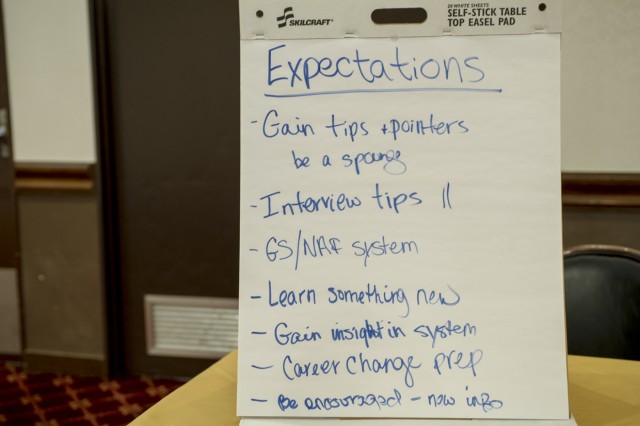 SKILCRAFT
20 WHITE SHEETS
SELF-STICK TABLE
TOP EASEL PAD
Expectations
- Gain tips + pointers
be a sponge
- Interview tips ||
- GS/NAF system
- Learn something new
- Gain insight in system
- Career Change prep
- Be encouraged - new info